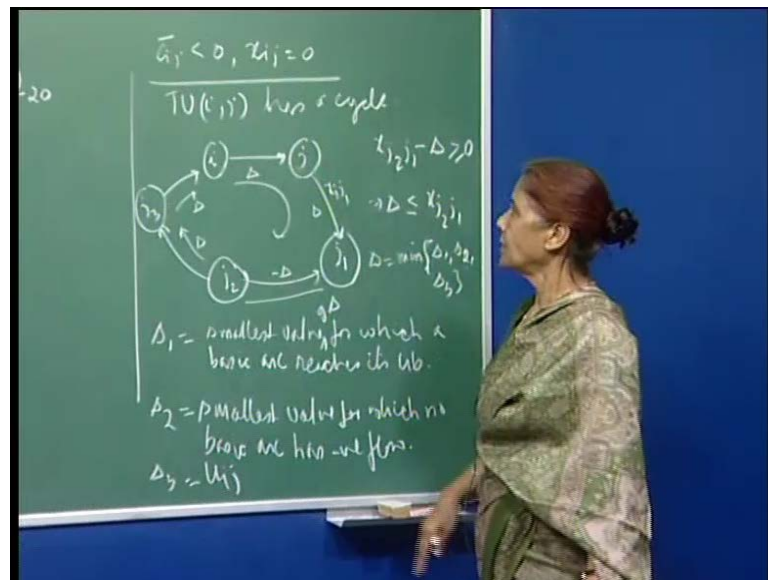 -20
c̄ij < 0, xij = 0
TU(i,j) has a cycle
i → j
Δ
xj2j1 - Δ ≥ 0
xjj1
Δ
j3
Δ
⇒ Δ ≤ xj2j1
Δ
j2
-Δ
j1
Δ = min{Δ1, Δ2,
Δ3}
Δ1 = smallest value of Δ for which a
basic arc reaches its ub.
Δ2 = smallest value for which no
basic arc has -ve flow.
Δ3 = uij